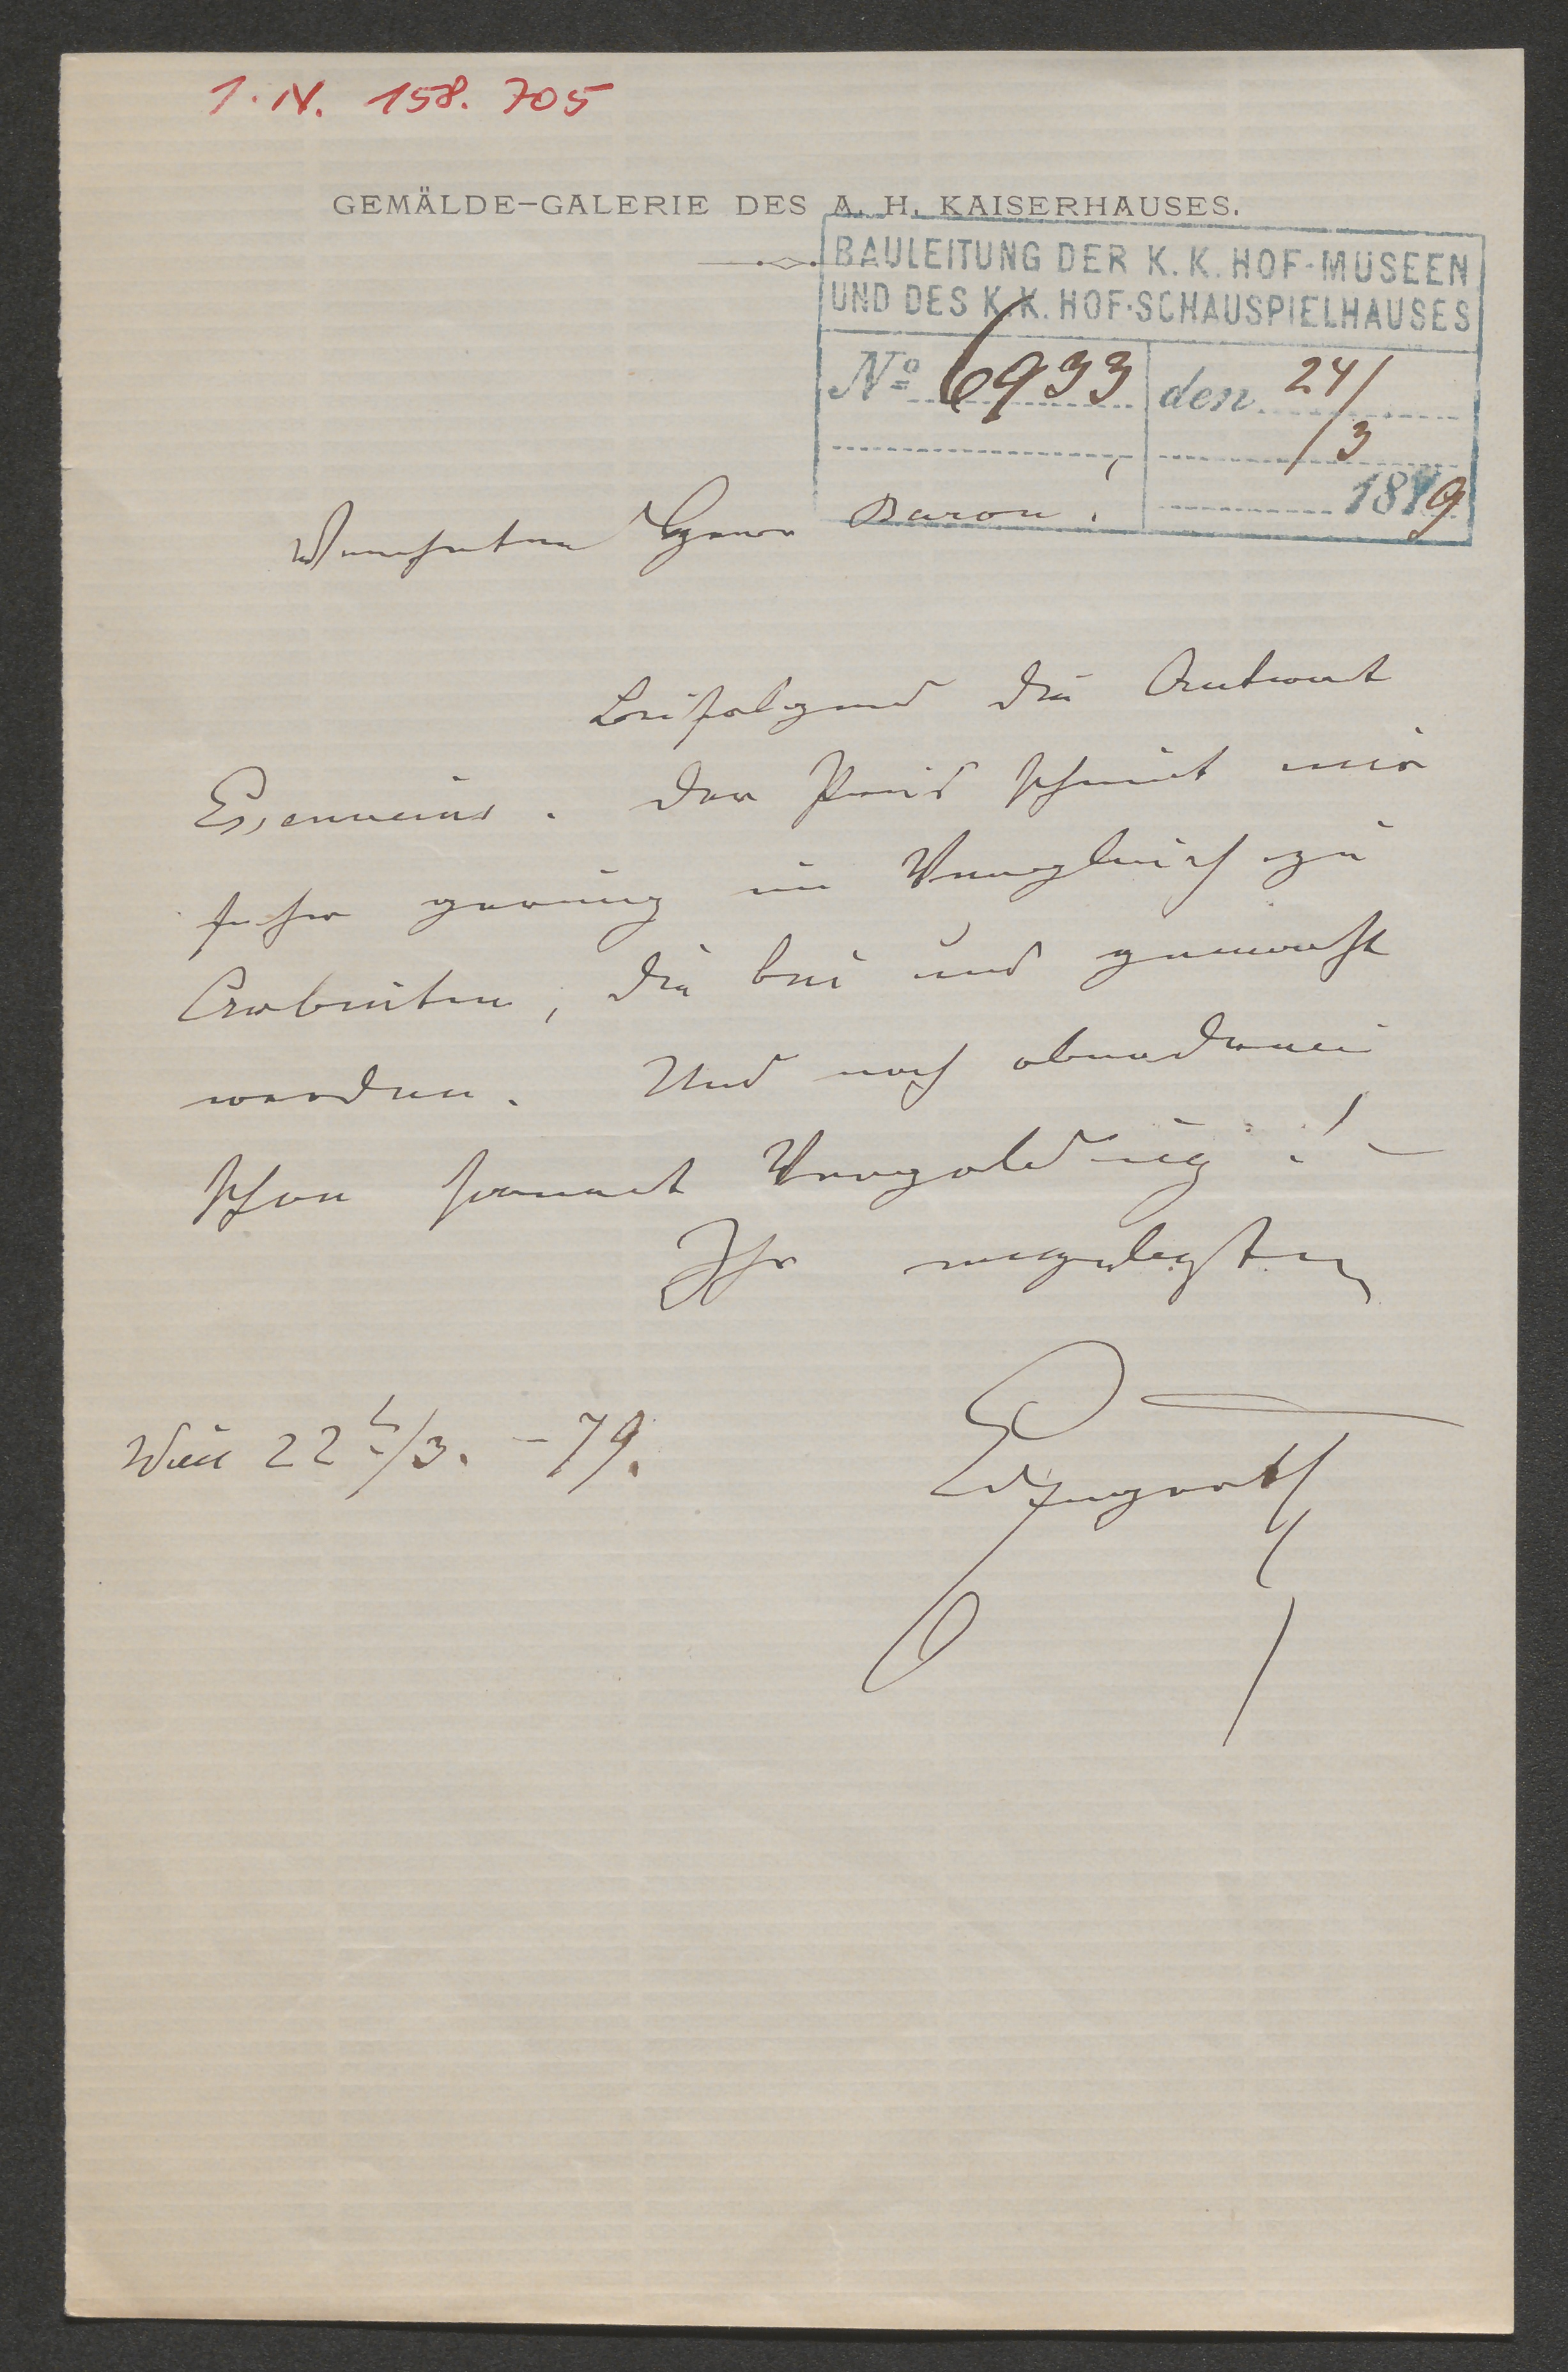 I. N. 158.705
GEMÄLDE-GALERIE DES A. H. KAISERHAUSES.
BAULEITUNG DER K. K. HOF-MUSEEN
UND DES K. K. HOF-SCHAUSPIELHAUSES
No 6933 den 24/
/3
1879
Verehrter Herr Baron!
Beifolgend die Antwort
Essenweins. Der Preis scheint mir
sehr gering im Vergleich zu
Arbeiten, die bei uns gemacht
werden. Und noch obendrein
schon sammt Vergoldung! –
Ihr ergebenster
Wien 22t/3. – 79.
Ed. Engerth